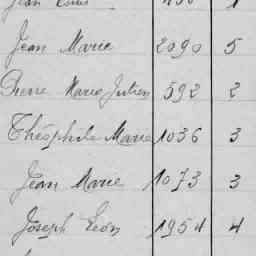 Jean Marie 2090 5
Pierre Marie Julien 592 2
Théophile Marie 1036 3
Jean Marie 1073 3
Joseph Léon 1954 4